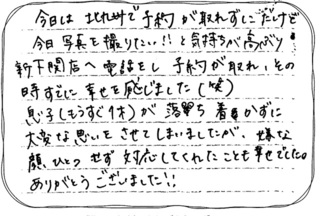 今日は北九州で予約が取れずにだけど
今日写真を撮りたい!!と気持ちが高ぶり
新下関店へ電話をし予約が取れ、その
時すでに幸せを感じました(笑)
息子(もうすぐ1才)が落ち着かずに
大変な思いをさせてしまいましたが、嫌な
顔、ひとつせず対応してくれたことも幸せでした。
ありがとうございました!!